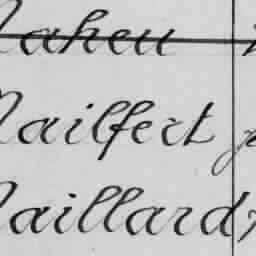 Maheu
Mailfert
Maillard